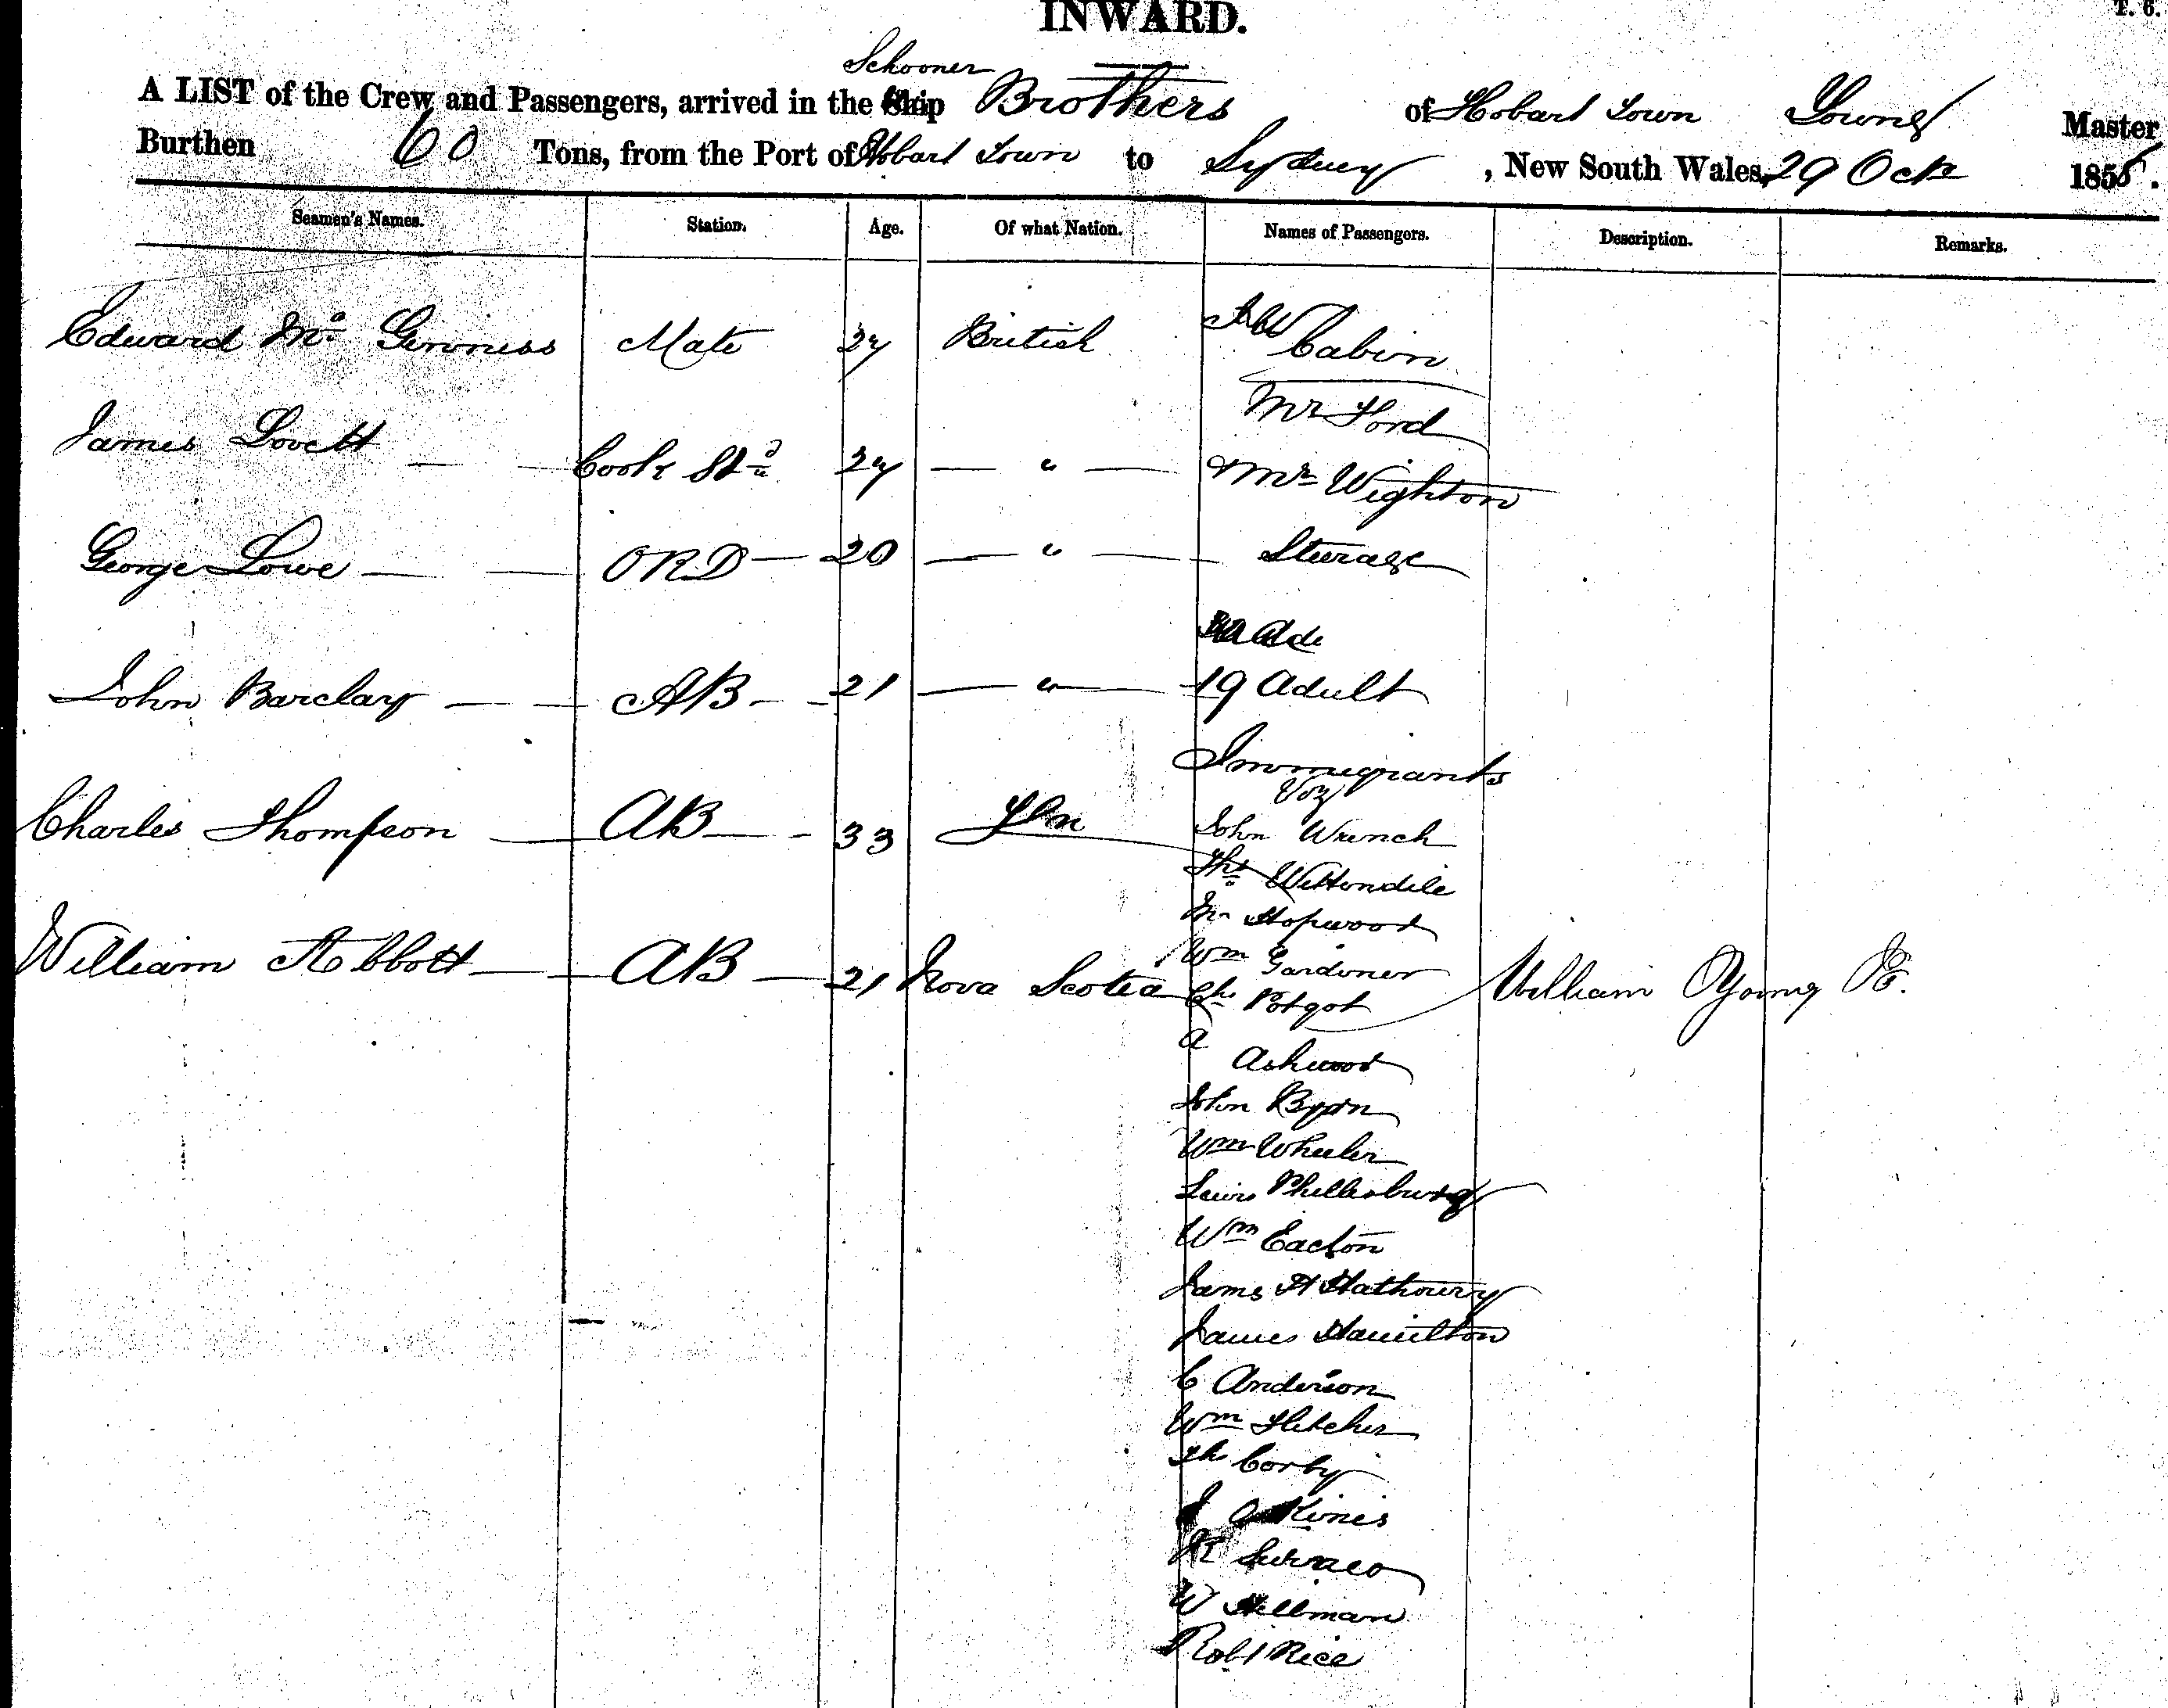 T. 6.
INWARD.
Schooner
A LIST of the Crew and Passengers, arrived in the Ship Brothers of Hobart Town Young Master
Burthen 60 Tons, from the Port of Hobart Town to Sydney, New South Wales, 29 Octr 1858.
Seamen's Names. Station. Age. Of what Nation. Names of Passengers. Description. Remarks.
Edward Mc Genness Mate 27 British Cabin
Mr Ford
James Lovett Cook Std 27 — " — & Mr Wighton
George Lowe ORD 20 — " — Steerage
John Barclay AB 21 — " — 19 Adult
Immigrants
Voz
Charles Thompson AB 33 John Wrench
Ths Wittondile
Hopwood
Wm Gardiner
William Abbott AB 21 Nova Scotia Chs Potgot William Young
A Ashwood
John Byrn
Wm Wheeler
Lewis Phillesburg
Wm Eacton
James H Hathourny
James Hamilton
C Anderson
Wm Fletcher
Ths Corby
Kines
R
W Hillman
Robt Rice